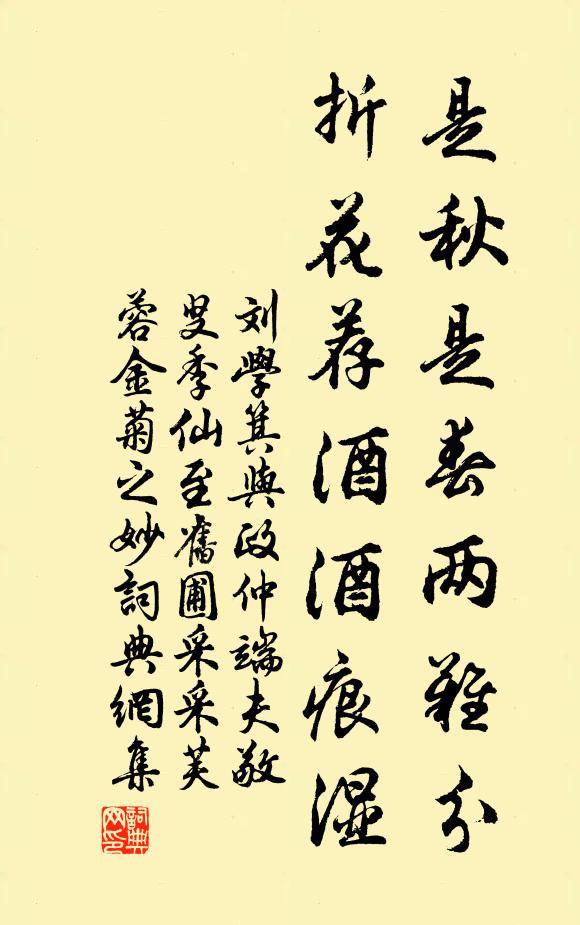 是秋是春两难分
折花荐酒酒痕湿
刘學箕與政仲端夫敬
叟季仙至舊圃采采芙
蓉金菊之妙詞典網集
詞典
网印